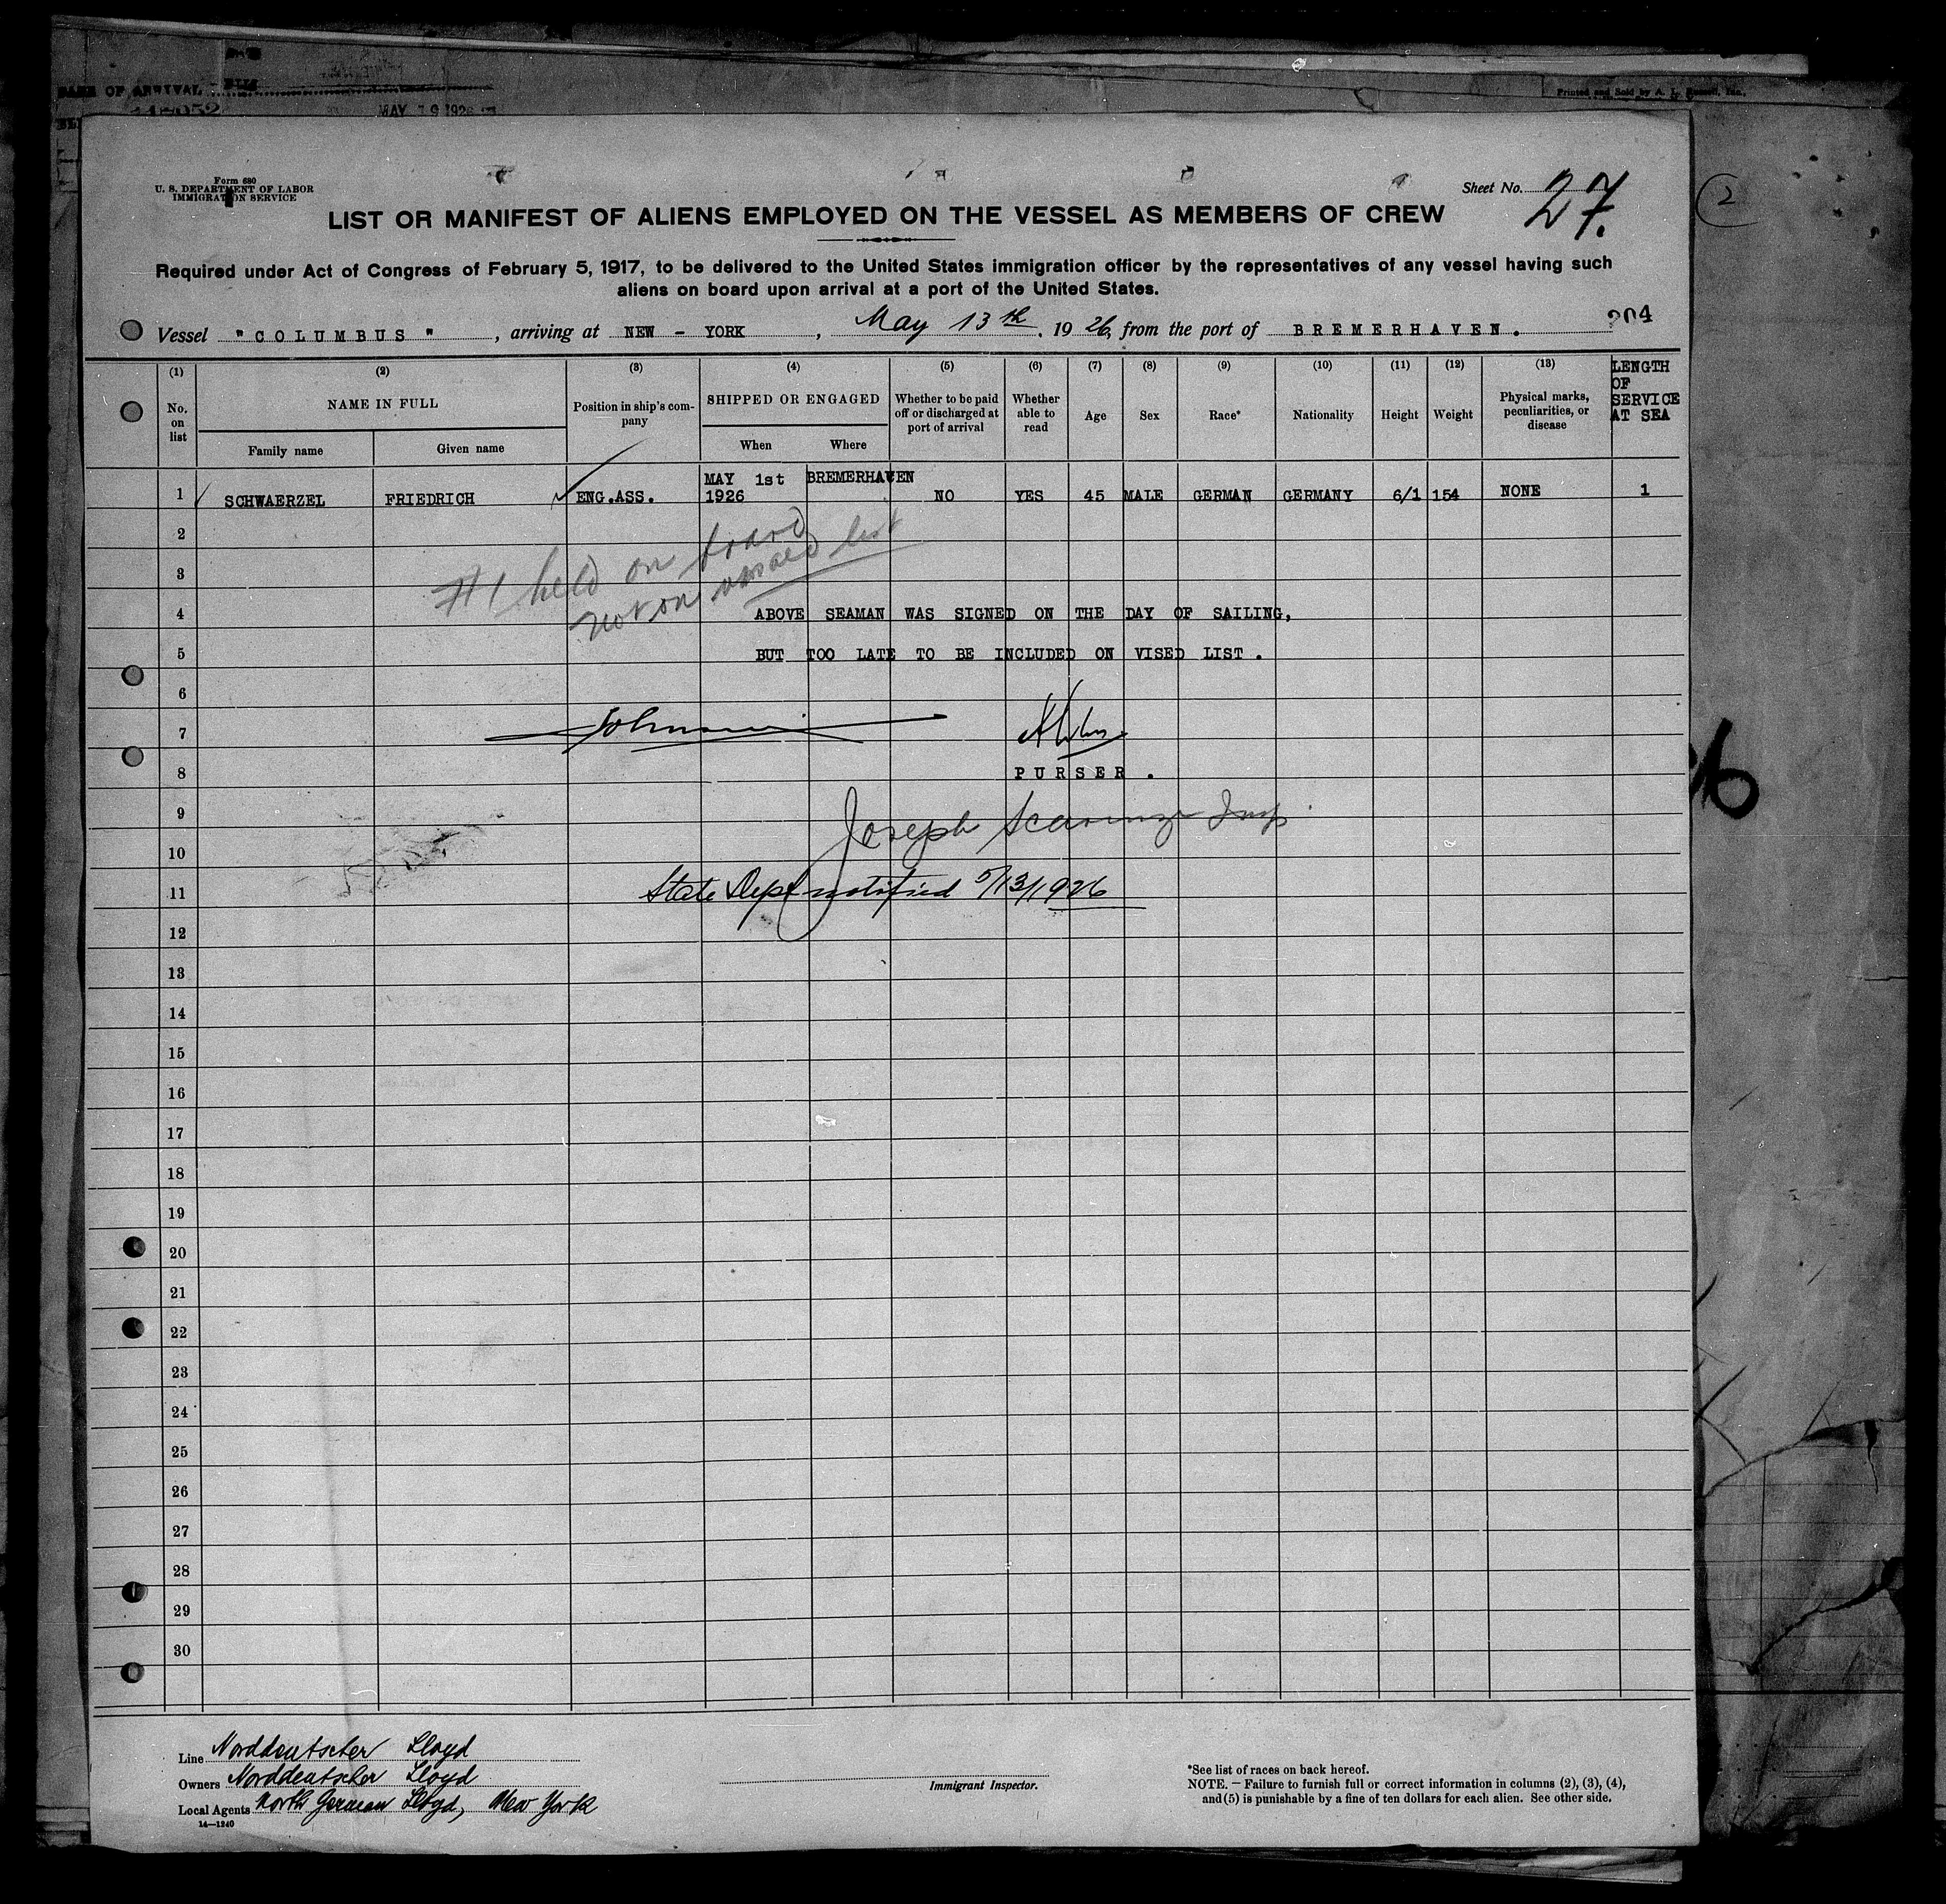 OF ARRIVAL
MAY 19 1926
Printed and Sold by A. L. Russell, Inc.,
Form 680
U. S. DEPARTMENT OF LABOR
IMMIGRATION SERVICE
Sheet No. 27.
2
LIST OR MANIFEST OF ALIENS EMPLOYED ON THE VESSEL AS MEMBERS OF CREW
Required under Act of Congress of February 5, 1917, to be delivered to the United States immigration officer by the representatives of any vessel having such
aliens on board upon arrival at a port of the United States.
204
Vessel "COLUMBUS", arriving at NEW - YORK, May 13th, 1926, from the port of BREMERHAVEN.
(1) (2) (3) (4) (5) (6) (7) (8) (9) (10) (11) (12) (13) LENGTH OF SERVICE AT SEA
No. on list NAME IN FULL Position in ship's company SHIPPED OR ENGAGED Whether to be paid off or discharged at port of arrival Whether able to read Age Sex Race* Nationality Height Weight Physical marks, peculiarities, or disease
Family name Given name When Where
1 SCHWAERZEL FRIEDRICH ENG.ASS. MAY 1st 1926 BREMERHAVEN NO YES 45 MALE GERMAN GERMANY 6/1 154 NONE 1
2
#1 held on board
3
not on visaed list
4 ABOVE SEAMAN WAS SIGNED ON THE DAY OF SAILING,
5 BUT TOO LATE TO BE INCLUDED ON VISED LIST.
6
7
8 PURSER.
9 Joseph Insp.
10
11 State Dept notified 5/13/1926
12
13
14
15
16
17
18
19
20
21
22
23
24
25
26
27
28
29
30
Line Norddeutscher Lloyd
Owners Norddeutscher Lloyd
Local Agents North German Lloyd, New York
14—1240
Immigrant Inspector.
*See list of races on back hereof.
NOTE. — Failure to furnish full or correct information in columns (2), (3), (4),
and (5) is punishable by a fine of ten dollars for each alien. See other side.